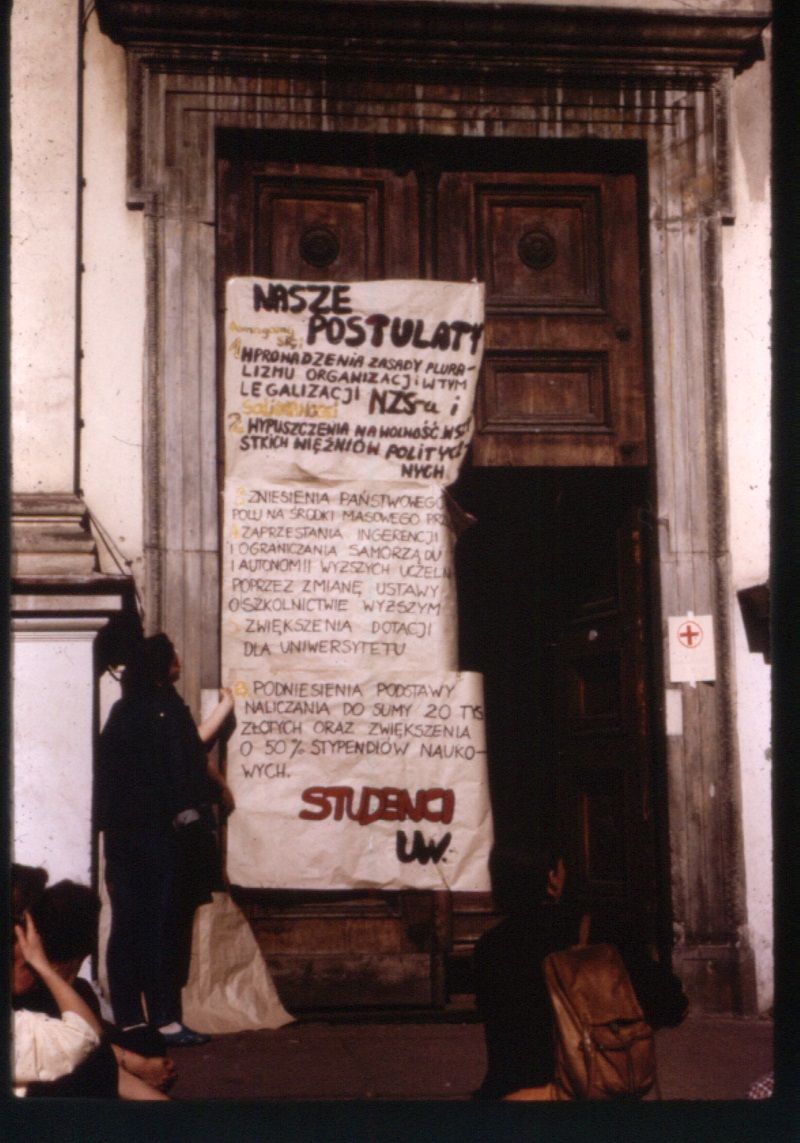 NASZE
POSTULATY
Domagamy
się:
1. WPROWADZENIA ZASADY PLURA-
LIZMU ORGANIZACJI W TYM
LEGALIZACJI NZS-u i
Solidarności
2. WYPUSZCZENIA NA WOLNOŚĆ WSZY
STKICH WIĘŹNIÓW POLITYCZ-
NYCH
3 ZNIESIENIA PAŃSTWOWEGO
POLU NA ŚRODKI MASOWEGO PRZ
4 ZAPRZESTANIA INGERENCJI
I OGRANICZANIA SAMORZĄDU
I AUTONOMII WYŻSZYCH UCZELN
POPRZEZ ZMIANĘ USTAWY
O SZKOLNICTWIE WYŻSZYM
5 ZWIĘKSZENIA DOTACJI
DLA UNIWERSYTETU
6. PODNIESIENIA PODSTAWY
NALICZANIA DO SUMY 20 TYS
ZŁOTYCH ORAZ ZWIĘKSZENIA
O 50% STYPENDIÓW NAUKO-
WYCH.
STUDENCI
UW.